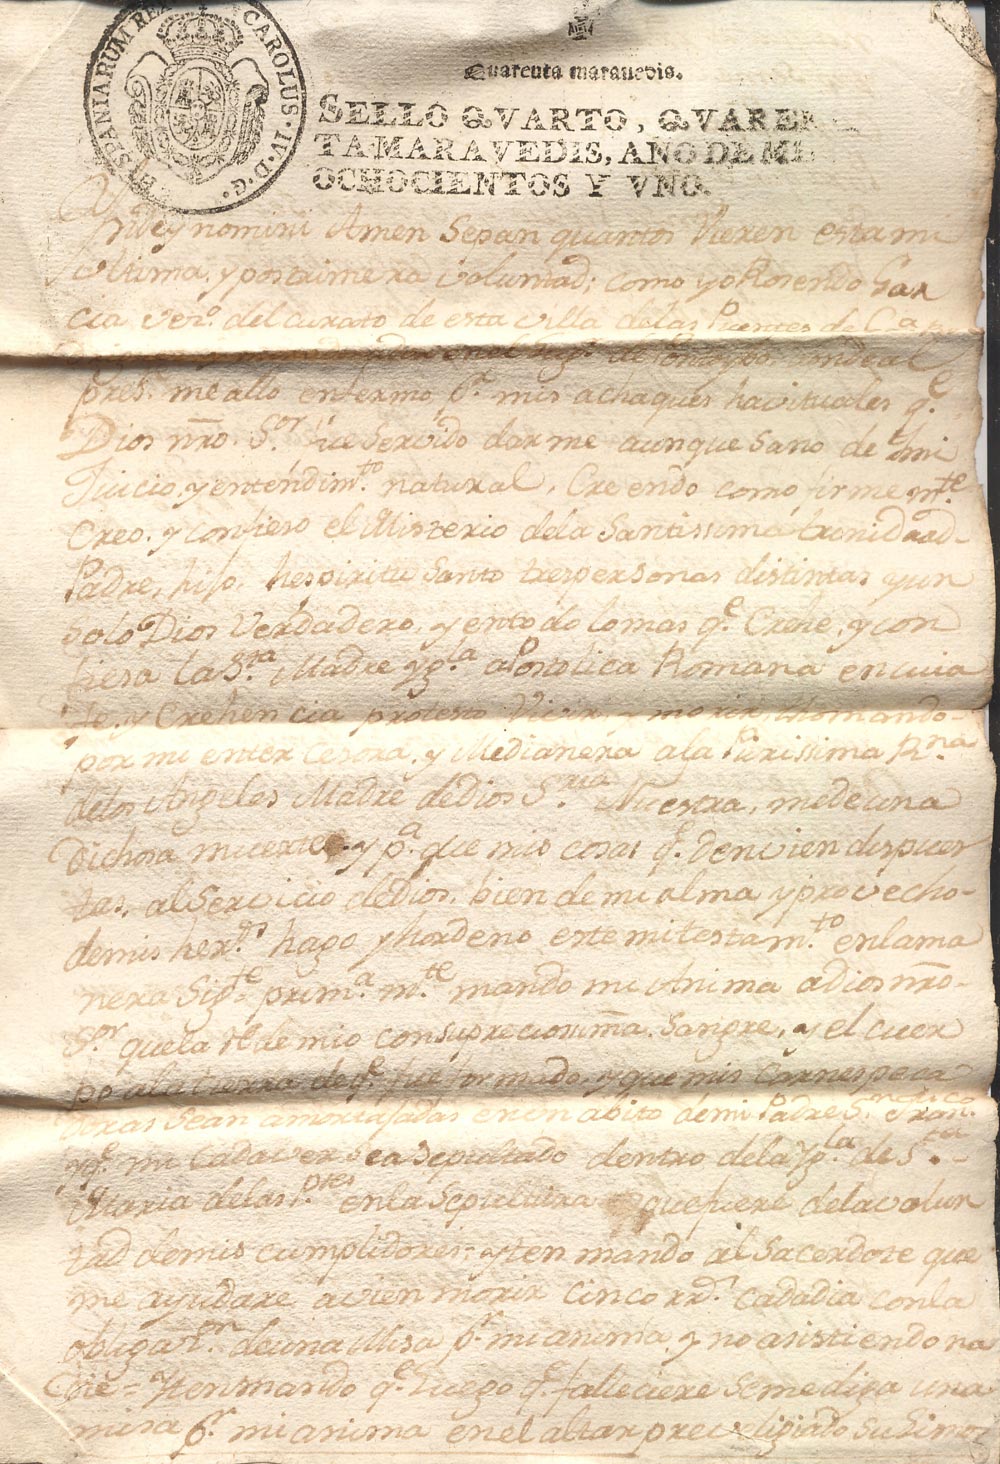 HISPANIARUM REX CAROLUS·IV·D·G·
Quarenta marauedis.
SELLO QVARTO, QVAREN
TA MARAVEDIS, AÑO DE MI
OCHOCIENTOS Y VNO.
nomini Amen Sepan quantos Vieren esta mi
vltima y postrimera voluntad; como yo Rosendo Gar
cia vez.º del curato de esta villa de las Puentes de
en el de
pres.te me allo enfermo p.r mis achaques havituales q.e
Dios nro. S.or fue Servido darme aunque sano de mi
Juicio, y enténdim.to natural, Creendo como firme m.te
Creo, y confieso el Misterio dela Santissima trenidad
Padre, hijo, hespiritu Santo tres personas distintas y un
Solo Dios Verdadero, y entodo lo mas q.e Crehe, y con
fiesa la S.ta Madre Yg.la aPostolica Romana en cuia
fe, y Crehencia protesto Vivir, y morir, tomando
por mi enter cesora, y Medianera a la Purissima R.na
delos Angeles Madre de Dios S.ra Nuestra, me de una
Dichosa muerte y p.a que mis cosas q.e den vien dispues
tas, al Servicio de Dios, bien de mi alma y provecho
de mis her.os hago y hordeno este mi testam.to en la ma
nera Sig.te prim.a m.te mando mi Anima a Dios nro
S.or que la redemio con su preciosis.ma Sangre, y el cuer
po a la tierra de q.e fue formado, y que mis Carnes peca
doras Sean amortajadas en un abito de mi Padre S.n Fran.co
y q.e mi cadaver sea sepultado dentro dela Yg.la de S.ta
Maria delas P.tes en la Sepultura que fuere dela volun
tad de mis cumplidores = yten mando al Sacerdote que
me ayudare a vien morir cinco rr.s cada dia con la
obligaz.on de una Misa p.r mi anima y no asistiendo na
die = Yten mando q.e luego q.e falleciere se me diga una
misa p.r mi anima en el altar previligiado su limos